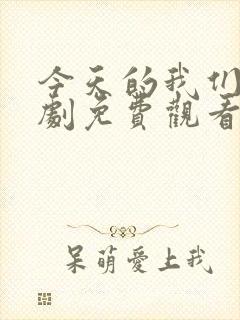 今天的我们
劇免費觀看
呆萌愛上我